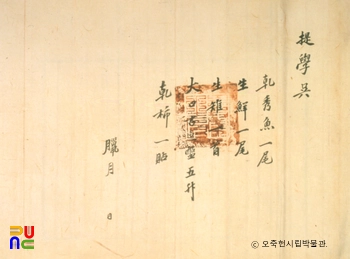 提學吳
乾秀魚一尾
生鮮一尾
生雉一首
大口古之盐五升
乾柿一貼
臘月 日
ⓒ 오죽헌시립박물관.